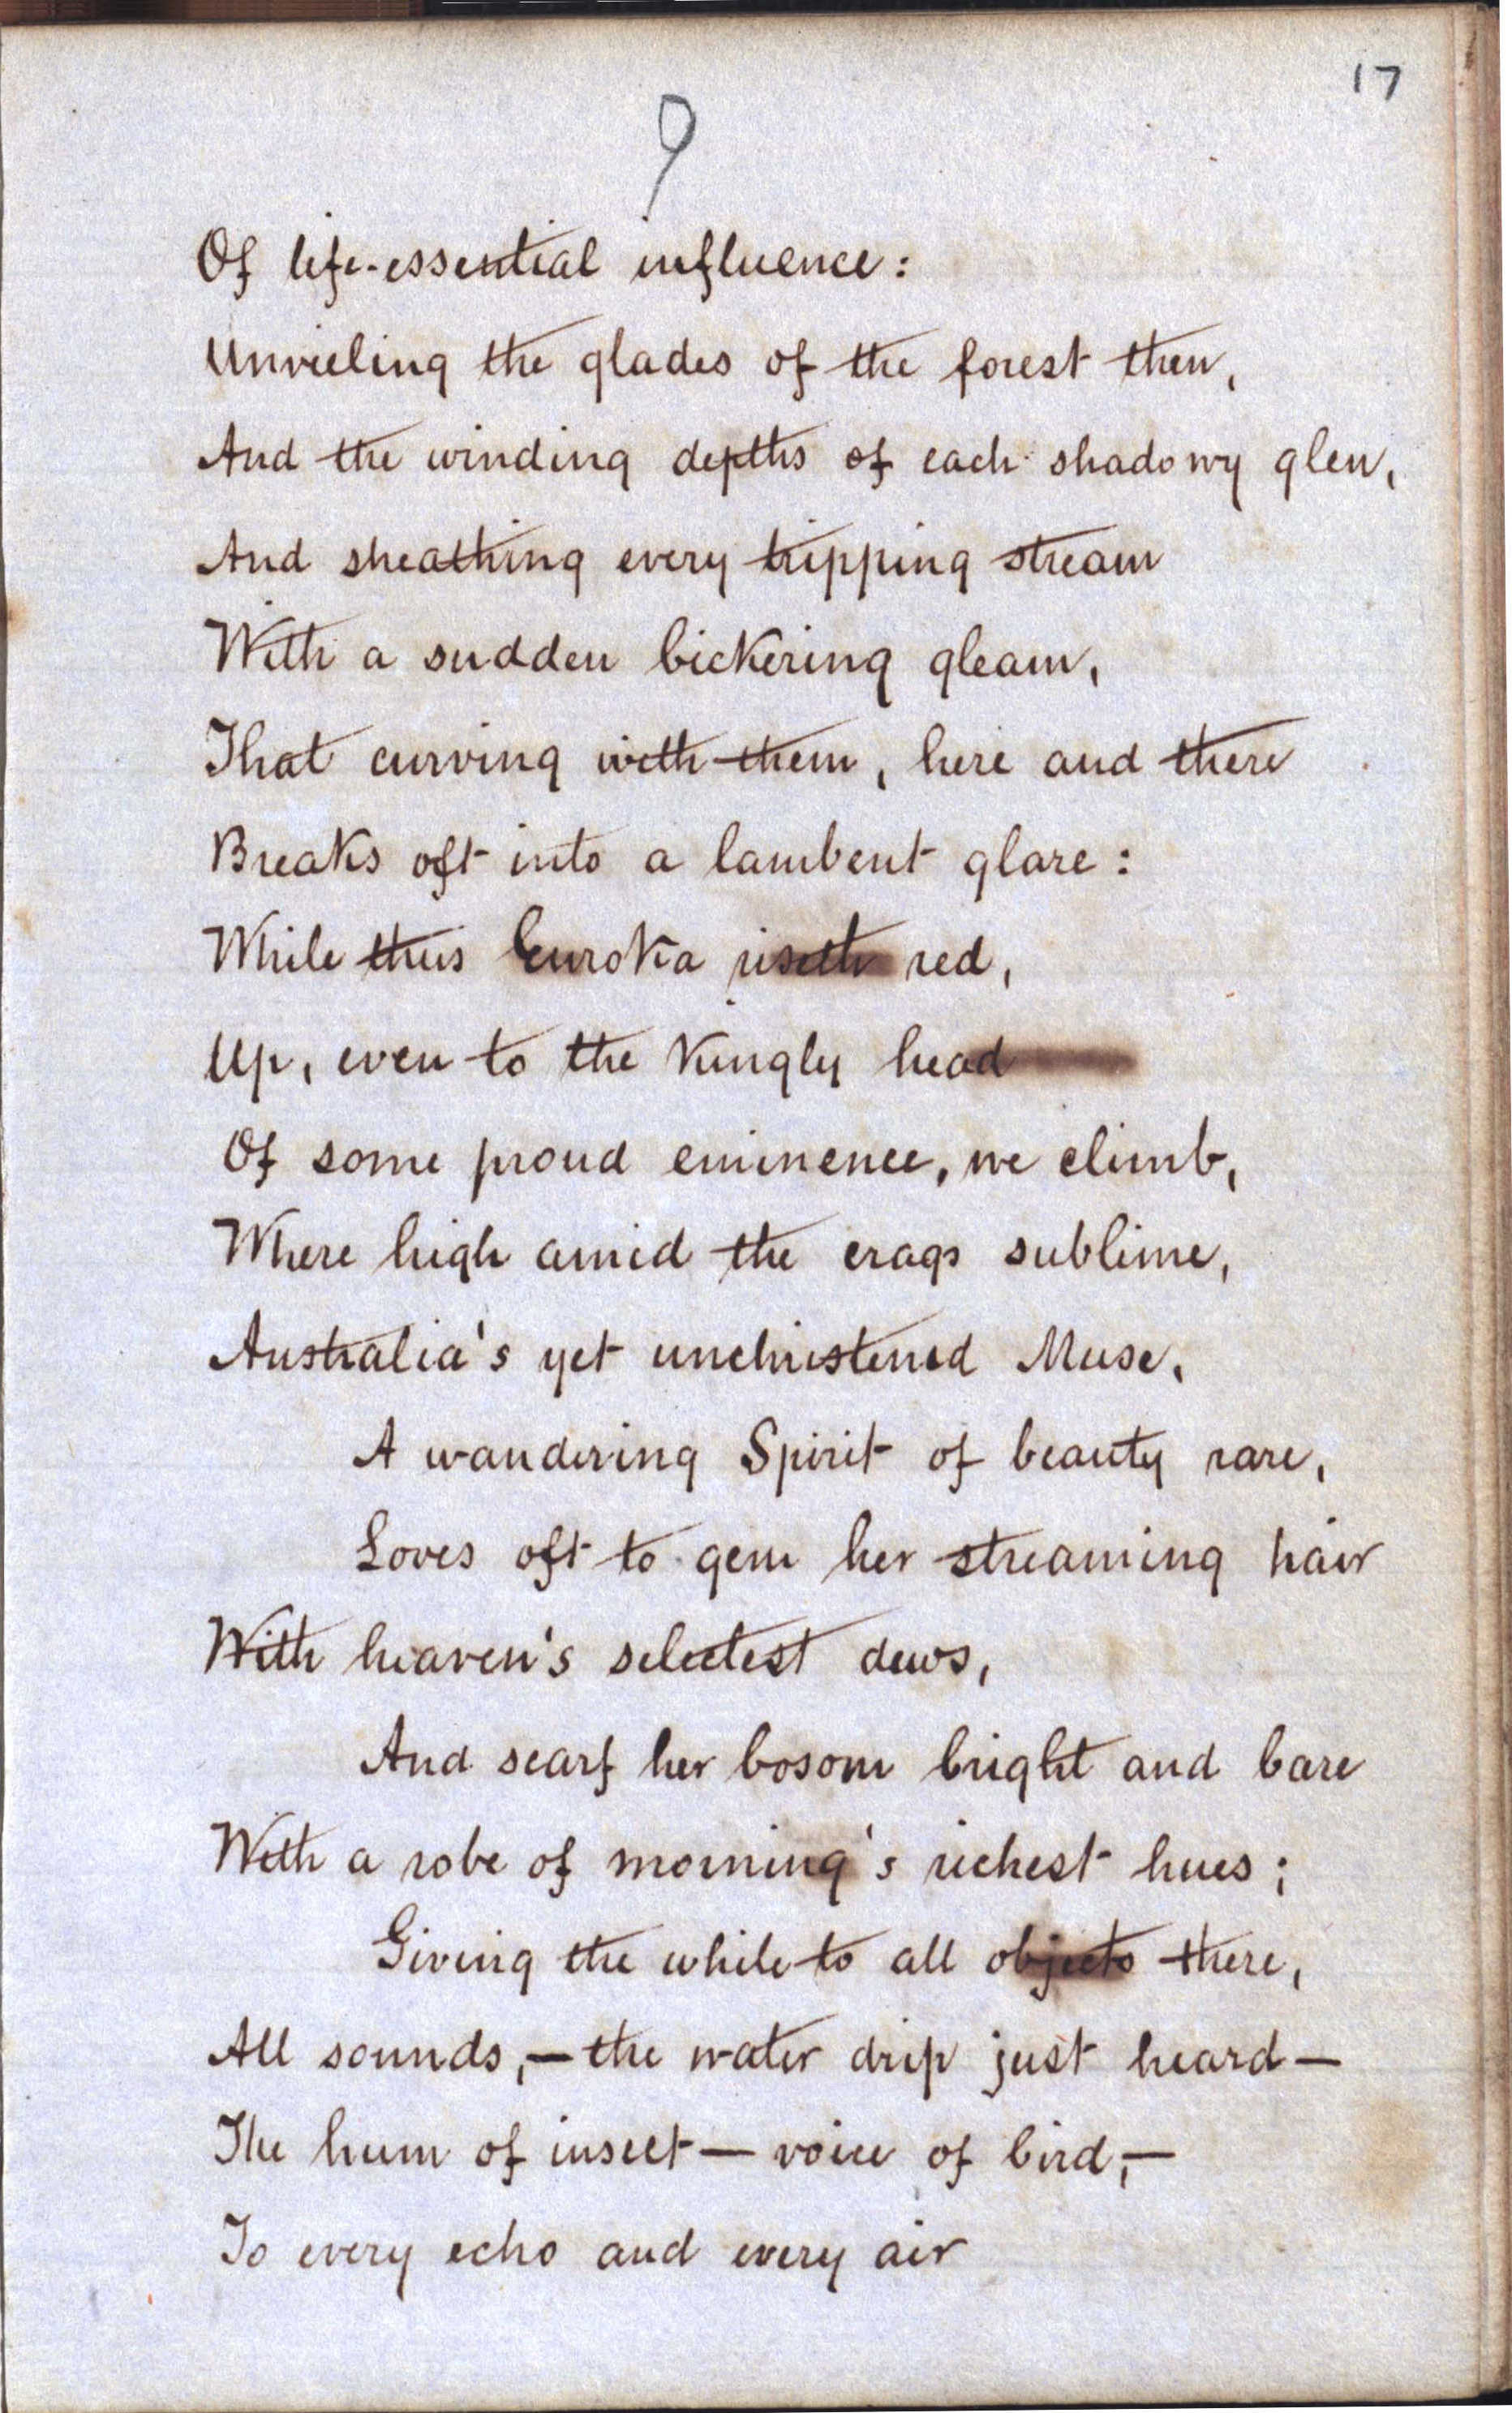 17
9
Of life-essential influence:
Unvieling the glades of the forest then,
And the winding depths of each shadowy glen,
And sheathing every tripping stream
With a sudden bickering gleam,
That curving with them, here and there
Breaks oft into a lambent glare:
While thus Euroka riseth red,
Up, even to the Kingly head
Of some proud eminence, we climb,
Where high amid the crags sublime,
Australia's yet unchristened Muse,
A wandering Spirit of beauty rare,
Loves oft to gem her streaming hair
With heaven's selectest dews,
And scarf her bosom bright and bare
With a robe of morning's richest hues;
Giving the while to all objects there,
All sounds,—the water drip just heard—
The hum of insect—voice of bird,—
To every echo and every air